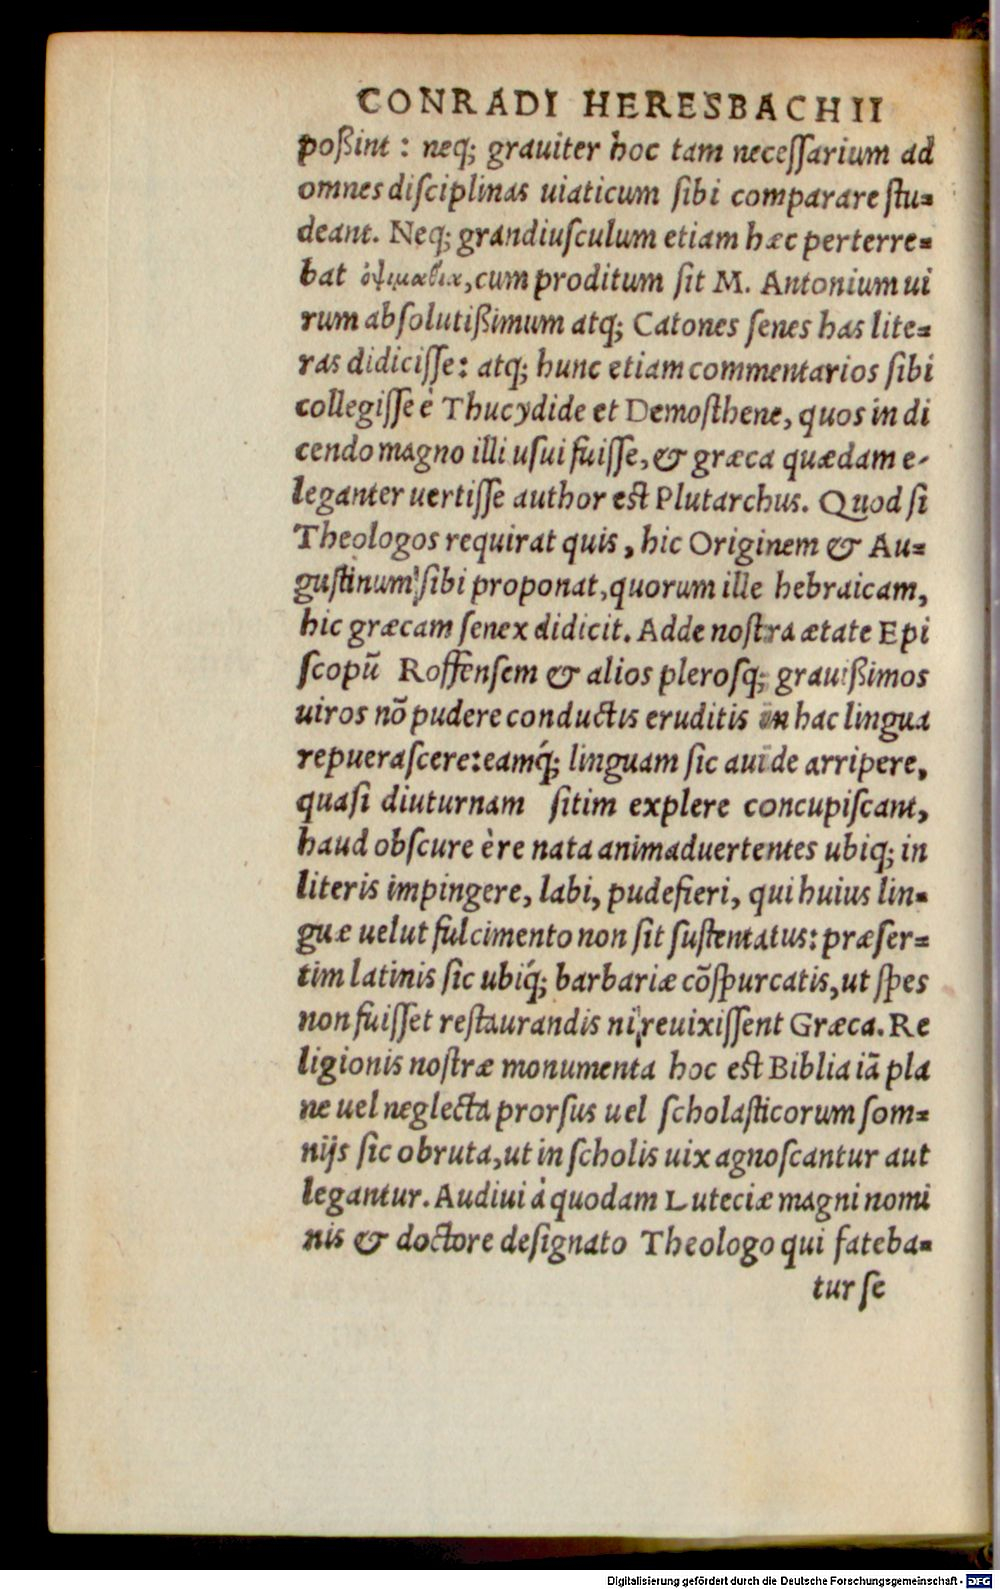 CONRADI HERESBACHII
poßint : neq; grauiter hoc tam neceſſarium ad
omnes diſciplinas uiaticum ſibi comparare ſtu-
deant. Neq; grandiuſculum etiam hæc perterre-
bat ὀψιμαθία, cum proditum ſit M. Antonium ui
rum abſolutißimum atq; Catones ſenes has lite-
ras didiciſſe: atq; hunc etiam commentarios ſibi
collegiſſe è Thucydide et Demoſthene, quos in di
cendo magno illi uſui fuiſſe, & græca quædam e-
leganter uertiſſe author est Plutarchus. Quod ſi
Theologos requirat quis, hic Originem & Au-
guſtinum ſibi proponat, quorum ille hebraicam,
hic græcam ſenex didicit. Adde noſtra ætate Epi
ſcopū Roffenſem & alios pleroſq; grauißimos
uiros nō pudere conductis eruditis in hac lingua
repueraſcere: eamq́; linguam ſic auide arripere,
quaſi diuturnam ſitim explere concupiſcant,
haud obſcure è re nata animaduertentes ubiq; in
literis impingere, labi, pudefieri, qui huius lin-
guæ uelut fulcimento non ſit ſuſtentatus: præſer-
tim latinis ſic ubiq́; barbariæ cōſpurcatis, ut ſpes
non fuiſſet reſtaurandis ni reuixiſſent Græca. Re
ligionis noſtræ monumenta hoc est Biblia iā pla
ne uel neglecta prorſus uel ſcholaſticorum ſom-
nijs ſic obruta, ut in ſcholis uix agnoſcantur aut
legantur. Audiui à quodam Luteciæ magni nomi
nis & doctore deſignato Theologo qui fateba-
tur ſe
Digitalisierung gefördert durch die Deutsche Forschungsgemeinschaft - DFG